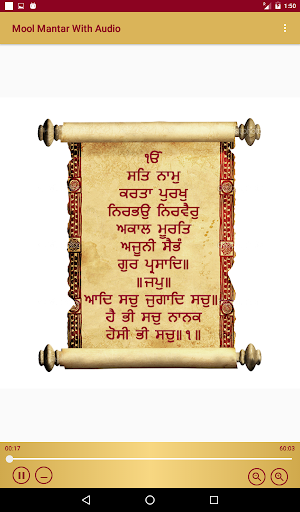 1:50
Mool Mantar With Audio
ੴ
ਸਤਿ ਨਾਮੁ
ਕਰਤਾ ਪੁਰਖੁ
ਨਿਰਭਉ ਨਿਰਵੈਰੁ
ਅਕਾਲ ਮੂਰਤਿ
ਅਜੂਨੀ ਸੈਭੰ
ਗੁਰ ਪ੍ਰਸਾਦਿ॥
॥ਜਪੁ॥
ਆਦਿ ਸਚੁ ਜੁਗਾਦਿ ਸਚੁ॥
ਹੈ ਭੀ ਸਚੁ ਨਾਨਕ
ਹੋਸੀ ਭੀ ਸਚੁ॥੧॥
00:17 60:03